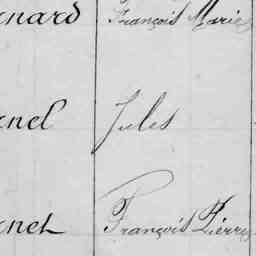 nard François Marie
nel Jules
net François Pierre